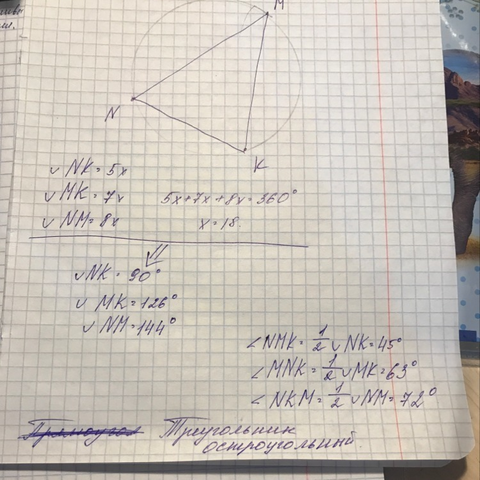 M
N
K
◡ NK = 5x
◡ MK = 7x 5x+7x+8x=360°
◡ NM = 8x x=18.
◡ NK = 90°
◡ MK = 126°
◡ NM = 144°
∠NMK = 1/2 ◡ NK = 45°
∠MNK = 1/2 ◡ MK = 63°
∠NKM = 1/2 ◡ NM = 72°
Прямоугол Треугольник
остроугольный.